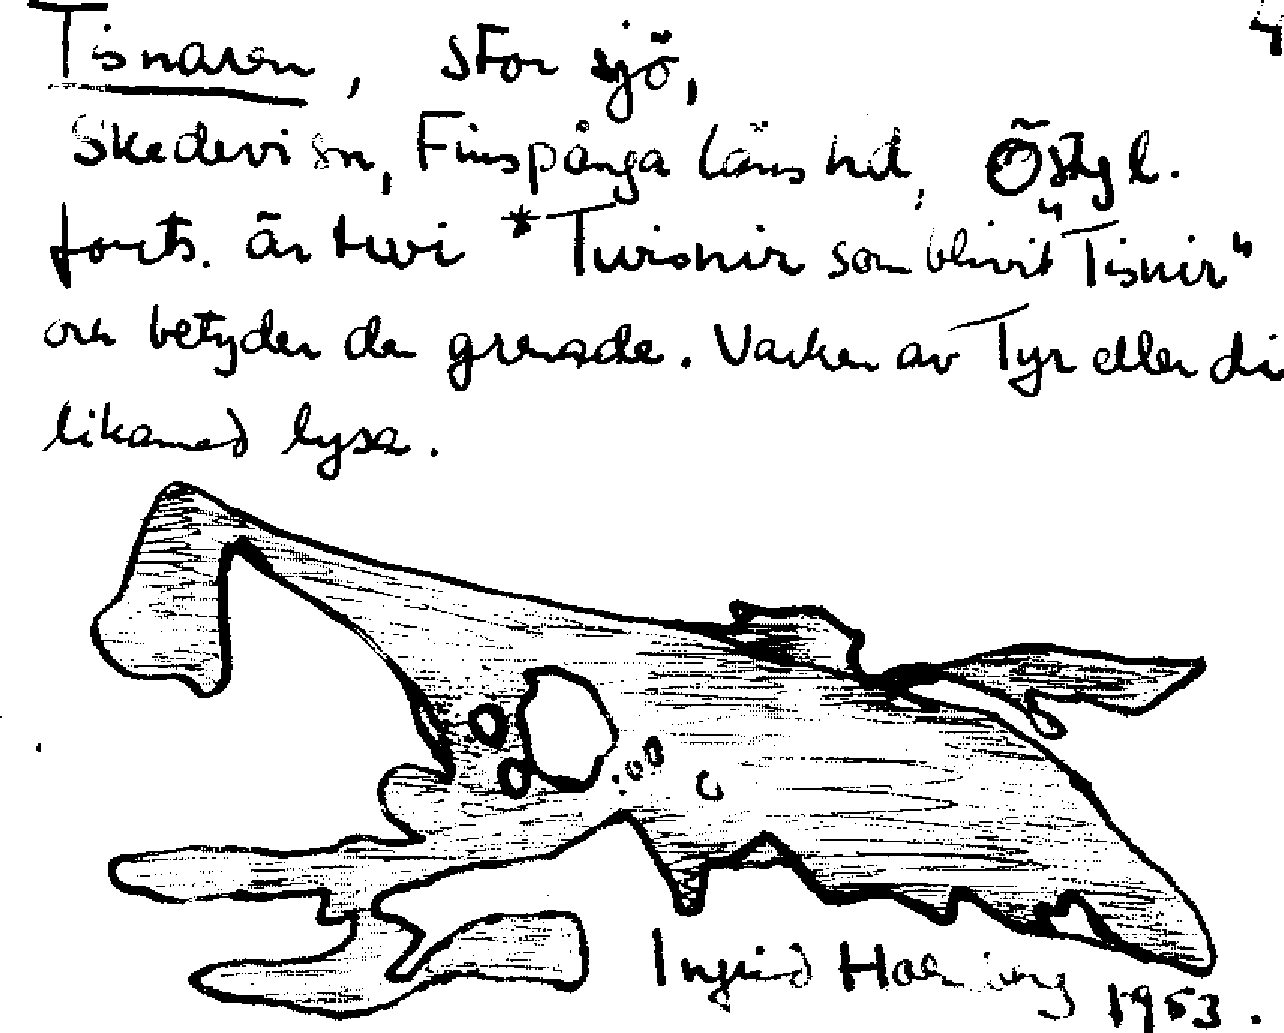 4
Tisnaren, stor sjö,
Skedevi sn, Finspånga läns hd, Östgl.
forts. är tvvi *Tvisnir som blivit "Tisnir"
och betyder den grenade. Varken av Tyr eller di
likamed lysa.
Ingrid
1953.